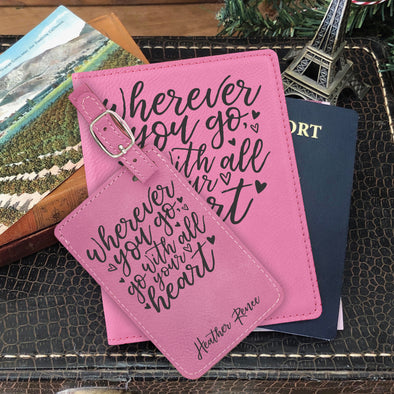 wherever
you go,
with all
your
heart
wherever
you go,
go with all
your
heart
Heather Renee
PORT